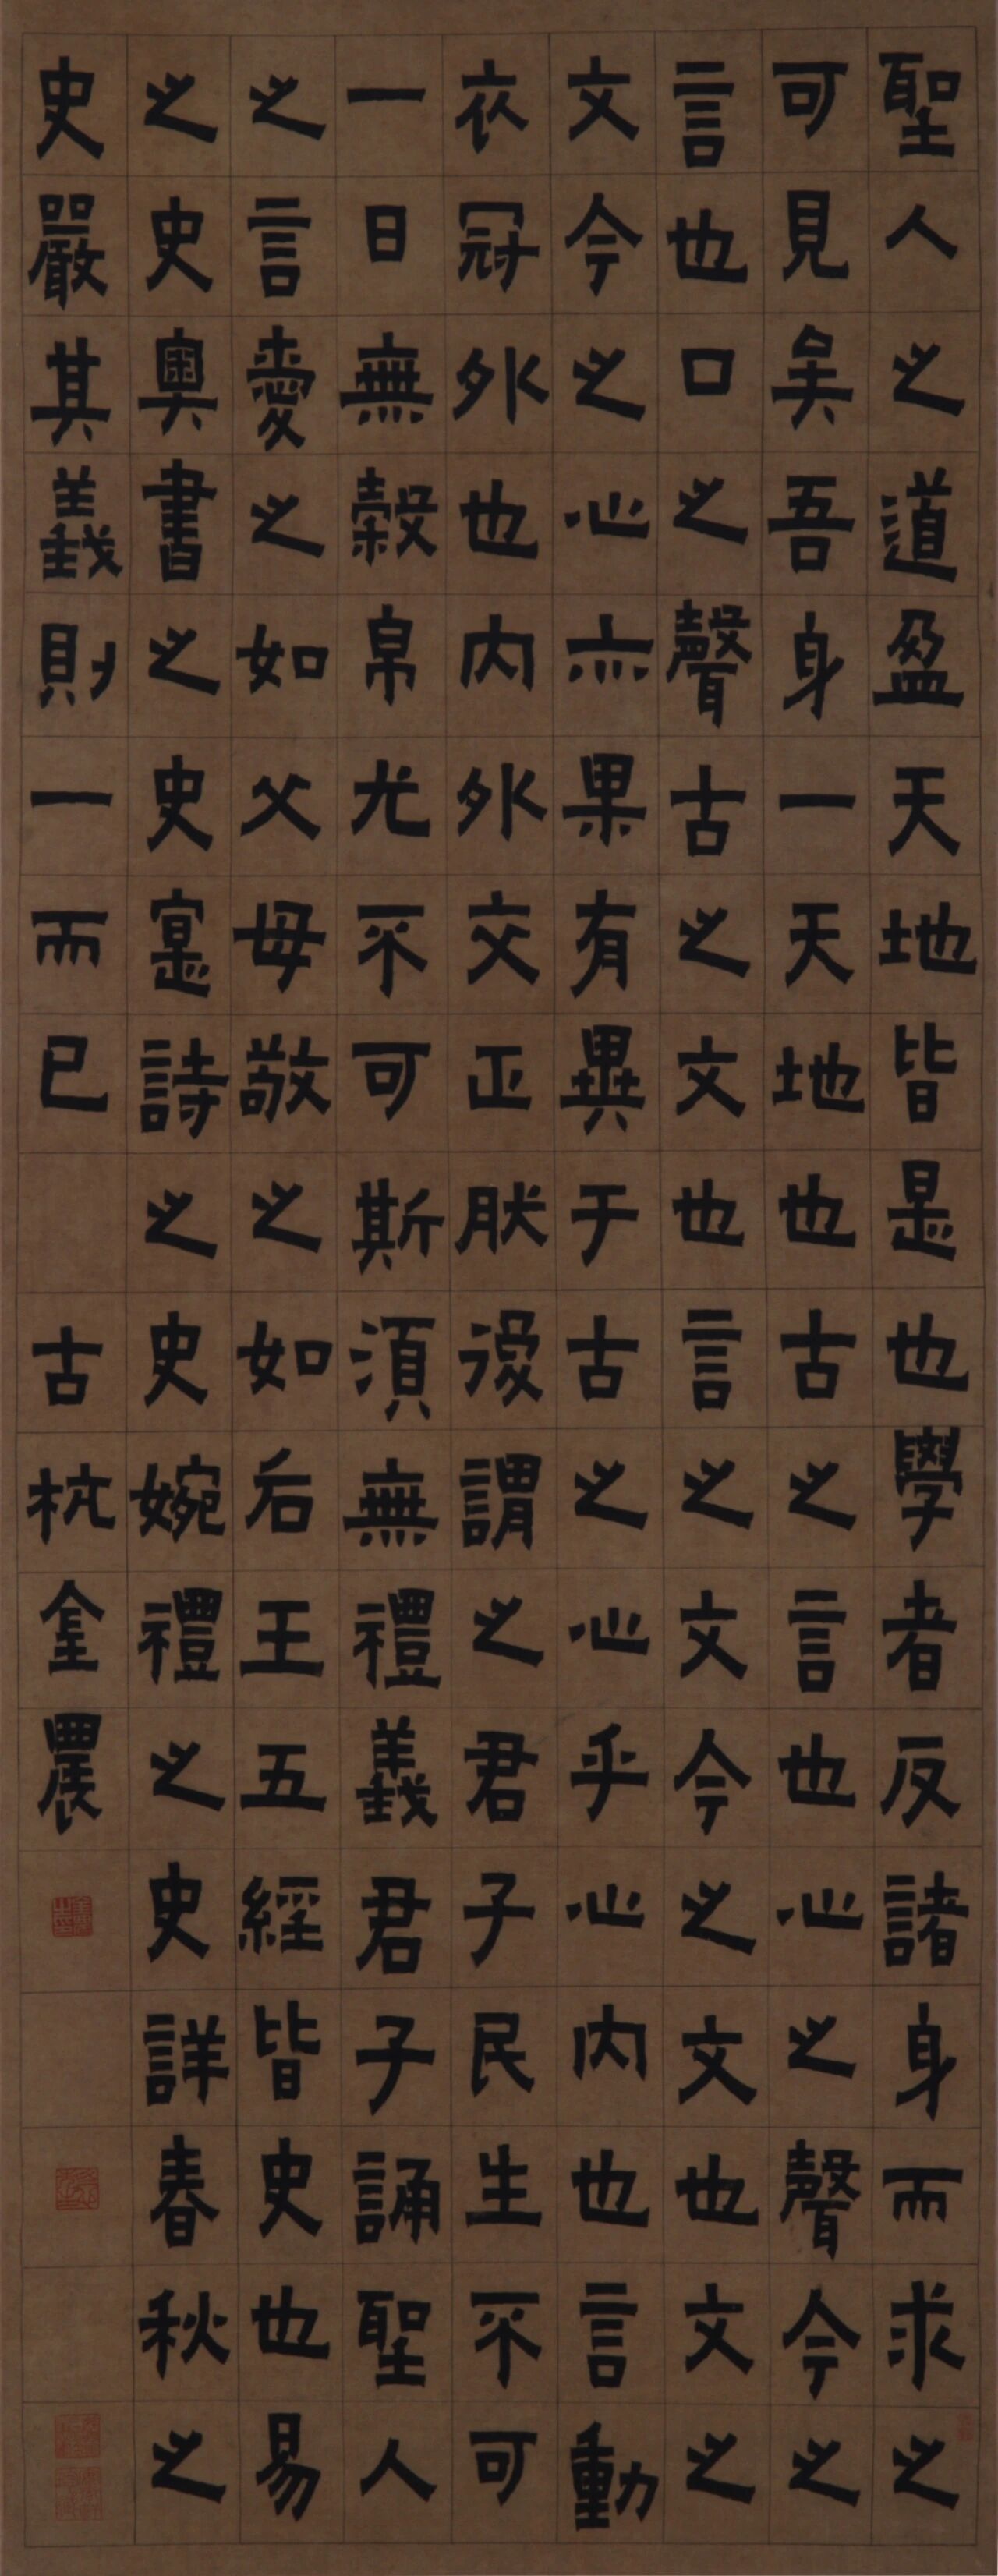 聖人之道盈天地皆是也學者反諸身而求之
可見矣吾身一天地也古之言也心之聲今之
言也口之聲古之文也言之文今之文也文之
文今之心亦果有異于古之心乎心內也言動
衣冠外也內外交正肰後謂之君子民生不可
一日無穀帛尤不可斯須無禮義君子誦聖人
之言愛之如父母敬之如后王五經皆史也易
之史奧書之史寔詩之史婉禮之史詳春秋之
史嚴其義則一而已 古杭金農